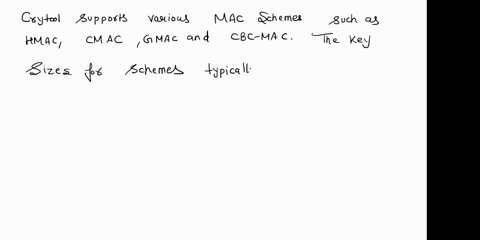 Crytool supports various MAC Schemes such as
HMAC, CMAC, GMAC and CBC-MAC. The Key
Sizes for schemes typicall